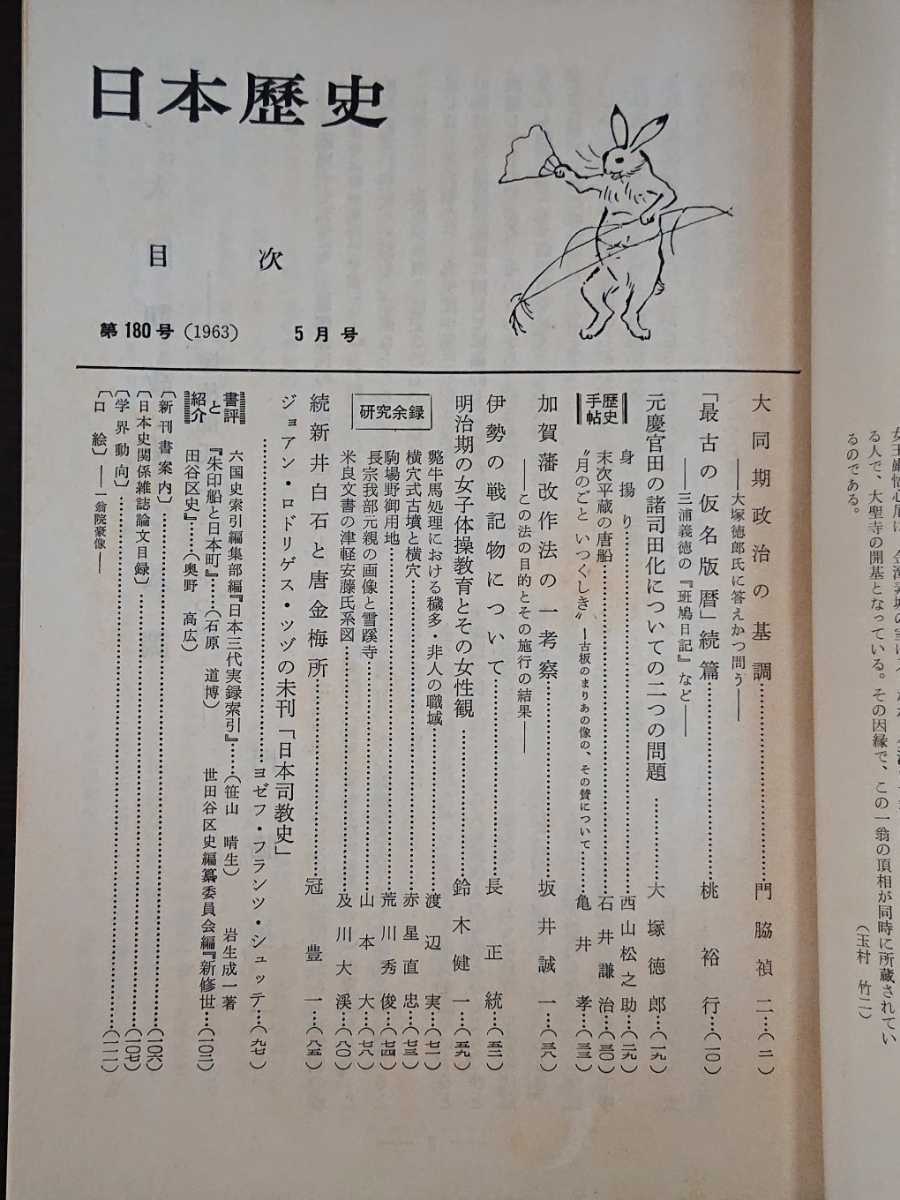 日本歷史
目次
第180号(1963) 5月号
大同期政治の基調…………門脇禎二…(二)
――大塚徳郎氏に答えかつ問う――
「最古の仮名版暦」続篇…………桃裕行…(一〇)
――三浦義徳の『班鳩日記』など――
元慶官田の諸司田化についての二つの問題…………大塚徳郎…(一九)
歴史手帖
身揚り…………西山松之助…(二九)
末次平蔵の唐船…………石井謙治…(三〇)
〝月のごと いつくしき〟―古板のまりあの像の、その賛について……亀井孝…(三三)
加賀藩改作法の一考察…………坂井誠一…(三八)
――この法の目的とその施行の結果――
伊勢の戦記物について…………長正統…(五二)
明治期の女子体操教育とその女性観…………鈴木健一…(五九)
研究余録
斃牛馬処理における穢多・非人の職域…………渡辺実…(七一)
横穴式古墳と横穴…………赤星直忠…(七三)
駒場野御用地…………荒川秀俊…(七四)
長宗我部元親の画像と雪蹊寺…………山本大…(七八)
米良文書の津軽安藤氏系図…………及川大渓…(八〇)
続新井白石と唐金梅所…………冠豊一…(八五)
ジョアン・ロドリゲス・ツヅの未刊「日本司教史」
…………ヨゼフ・フランツ・シュッテ…(九七)
書評と紹介
六国史索引編集部編『日本三代実録索引』……(笹山晴生) 岩生成一著
『朱印船と日本町』……(石原道博) 世田谷区史編纂委員会編『新修世…(一〇二)
田谷区史』……(奥野高広)
〔新刊書案内〕…………(一〇六)
〔日本史関係雑誌論文目録〕…………(一〇七)
〔学界動向〕…………(一一一)
〔口絵〕――一翁院豪像――
る人で、大聖寺の開基となっている。その因縁で、この一翁の頂相が同時に所蔵されてい
るのである。
(玉村竹二)